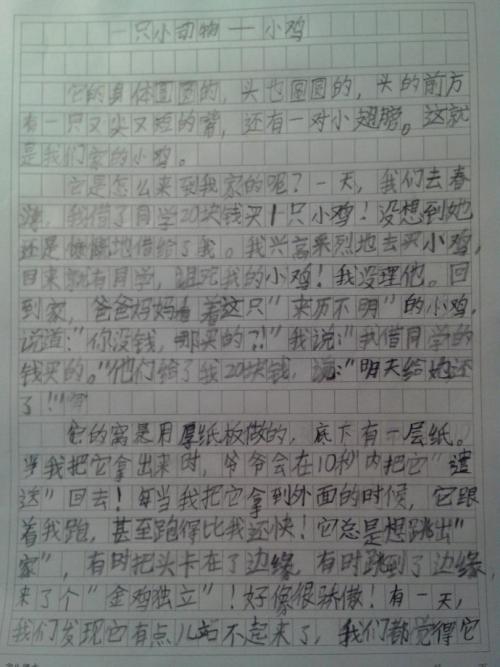 一只小动物——小鸡
它的身体圆圆的，头也圆圆的，头的前方
有一只又尖又短的嘴，还有一对小翅膀。这就
是我们家的小鸡。
它是怎么来到我家的呢？一天，我们去春
游，我借了同学20块钱买1只小鸡！没想到她
还是慷慨地借给了我。我兴高采烈地去买小鸡，
回来就有同学，诅咒我的小鸡！我没理他。回
到家，爸爸妈妈看着这只“来历不明”的小鸡，
说道：“你没钱，哪买的？！”我说：“我借同学的
钱买的。”他们给了我20块钱，说：“明天给她还
了！”
它的窝是用厚纸板做的，底下有一层纸。
当我把它拿出来时，爷爷会在10秒内把它“遣
送”回去！每当我把它拿到外面的时候，它跟
着我跑，甚至跑得比我还快！它总是想跳出“
家”，有时把头卡在了边缘，有时跳到了边缘，
来了个“金鸡独立”！好像很骄傲！有一天，
我们发现它有点儿站不起来了，我们都觉得它